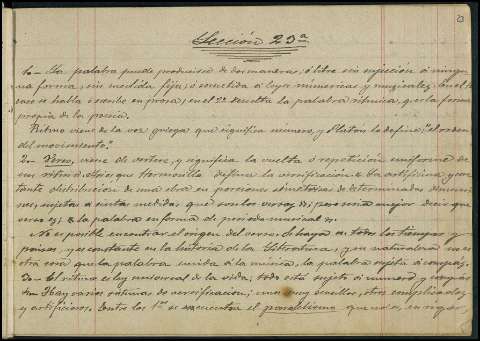 Lección 23ª
1ª - La palabra puede producirse de dos maneras, ó libre sin sujeción á ningu
na forma, sin medida fija, ó sometida á leyes numéricas y musicales. En el 1er
caso se habla ó escribe en prosa; en el 2º resulta la palabra rítmica, que es la forma
propia de la poesía.
Ritmo viene de la voz griega que significa número, y Platón lo define; "el orden
del movimiento."
2ª - Verso, viene de vertere, y significa la vuelta ó repetición uniforme de
un ritmo. Dijo que Hermosilla define la versificación: La artificiosa y cons
tante distribución de una obra en porciones simétricas de determinadas dimensio
nes, sujetas á cierta medida que son los versos; pero sería mejor decir que
verso es; la palabra en forma de período musical.
No es posible encontrar el origen del verso: le hay en todos los tiempos y
países, y es constante en la historia de la Literatura, y su naturaleza no es
otra cosa que la palabra unida á la música, la palabra sujeta á compás.
3ª - El ritmo es ley universal de la vida; todo está sujeto á número y compás
4ª - Hay varios sistemas de versificación; unos muy sencillos, otros complicados
y artificiosos. Entre los 1os se encuentra el paralelismo que no es, en rigor,